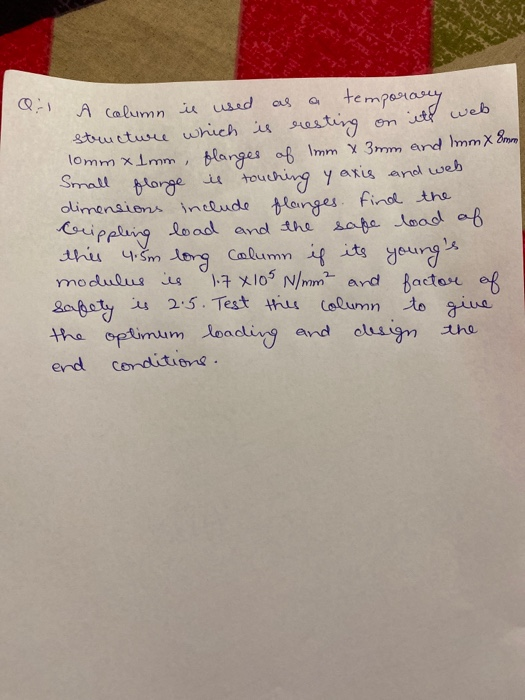 Q:-1 A column is used as a temporary
structure which is resting on its web
10mm x 1mm, flanges of 1mm x 3mm and 1mm x 8mm
Small flange is touching y axis and web
dimensions include flanges. Find the
Crippling load and the safe load of
this 4.5m long column if its young's
modulus is 1.7 x 10⁵ N/mm² and factor of
safety is 2.5. Test this column to give
the optimum loading and design the
end conditions.